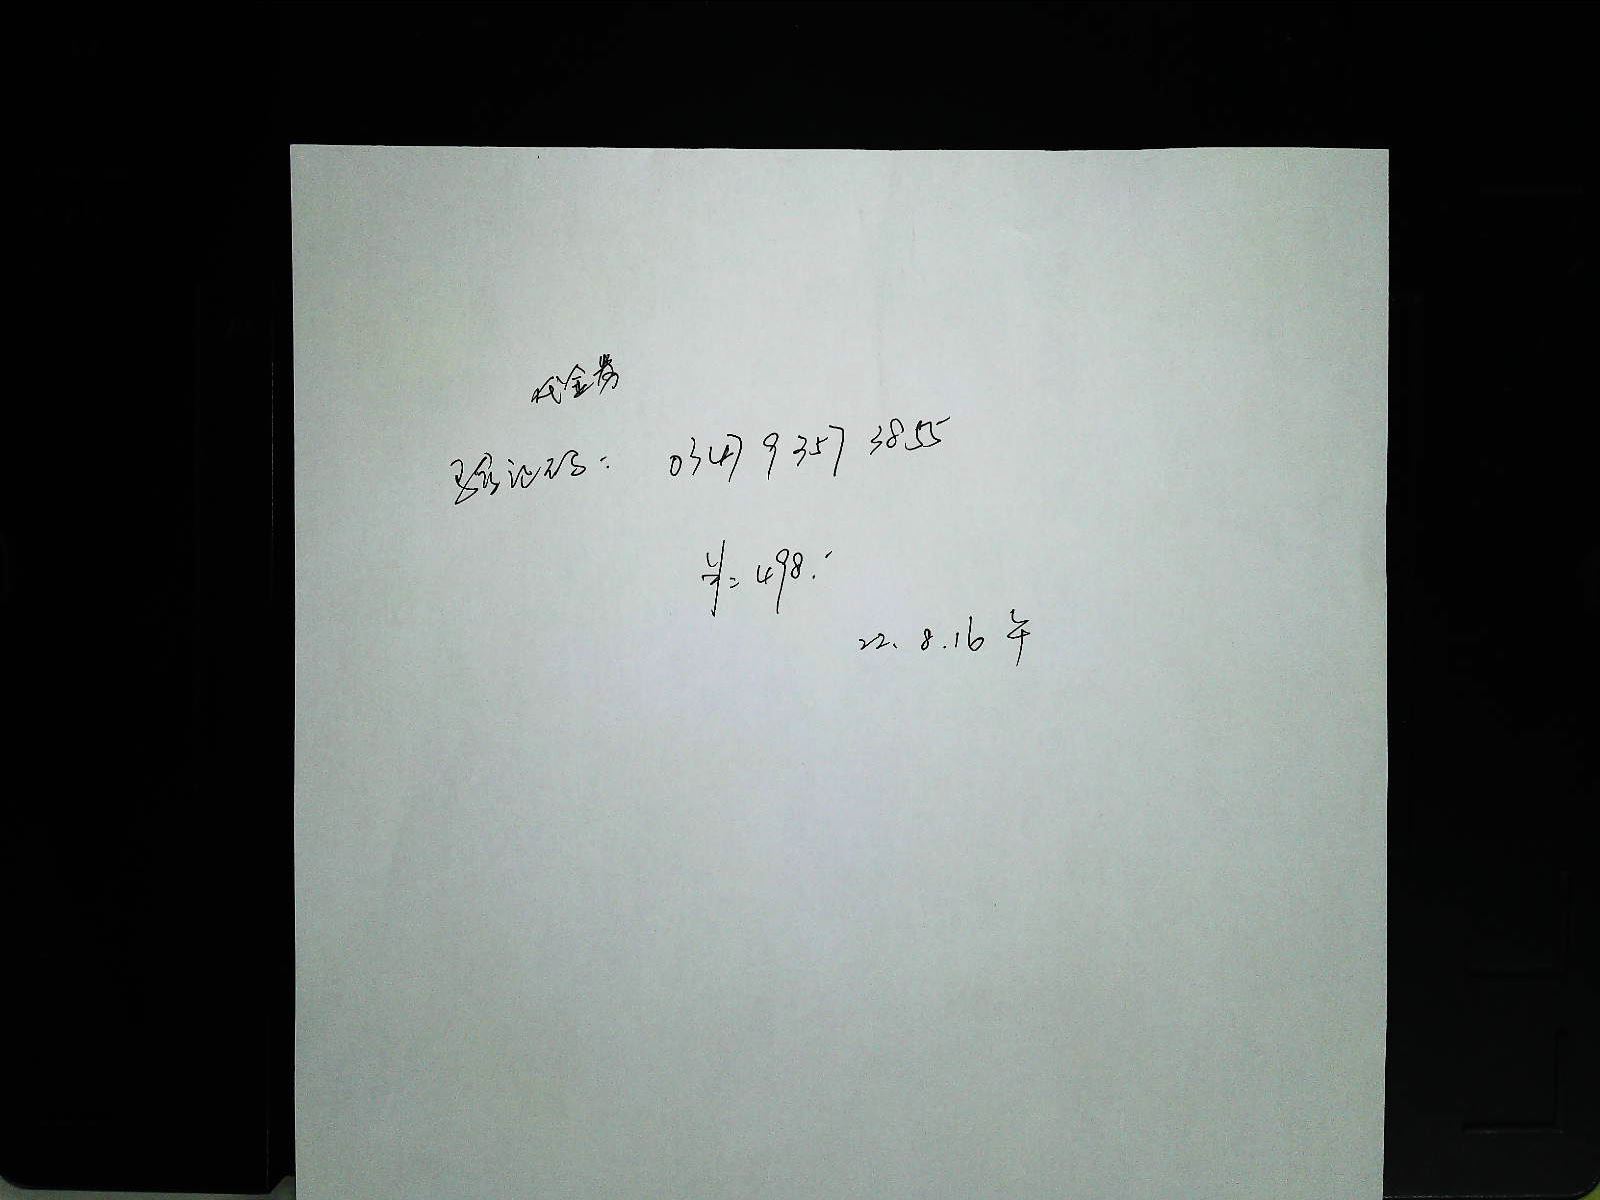 代金券
验证码: 0347 9 357 3855
¥=498.-
22.8.16 午